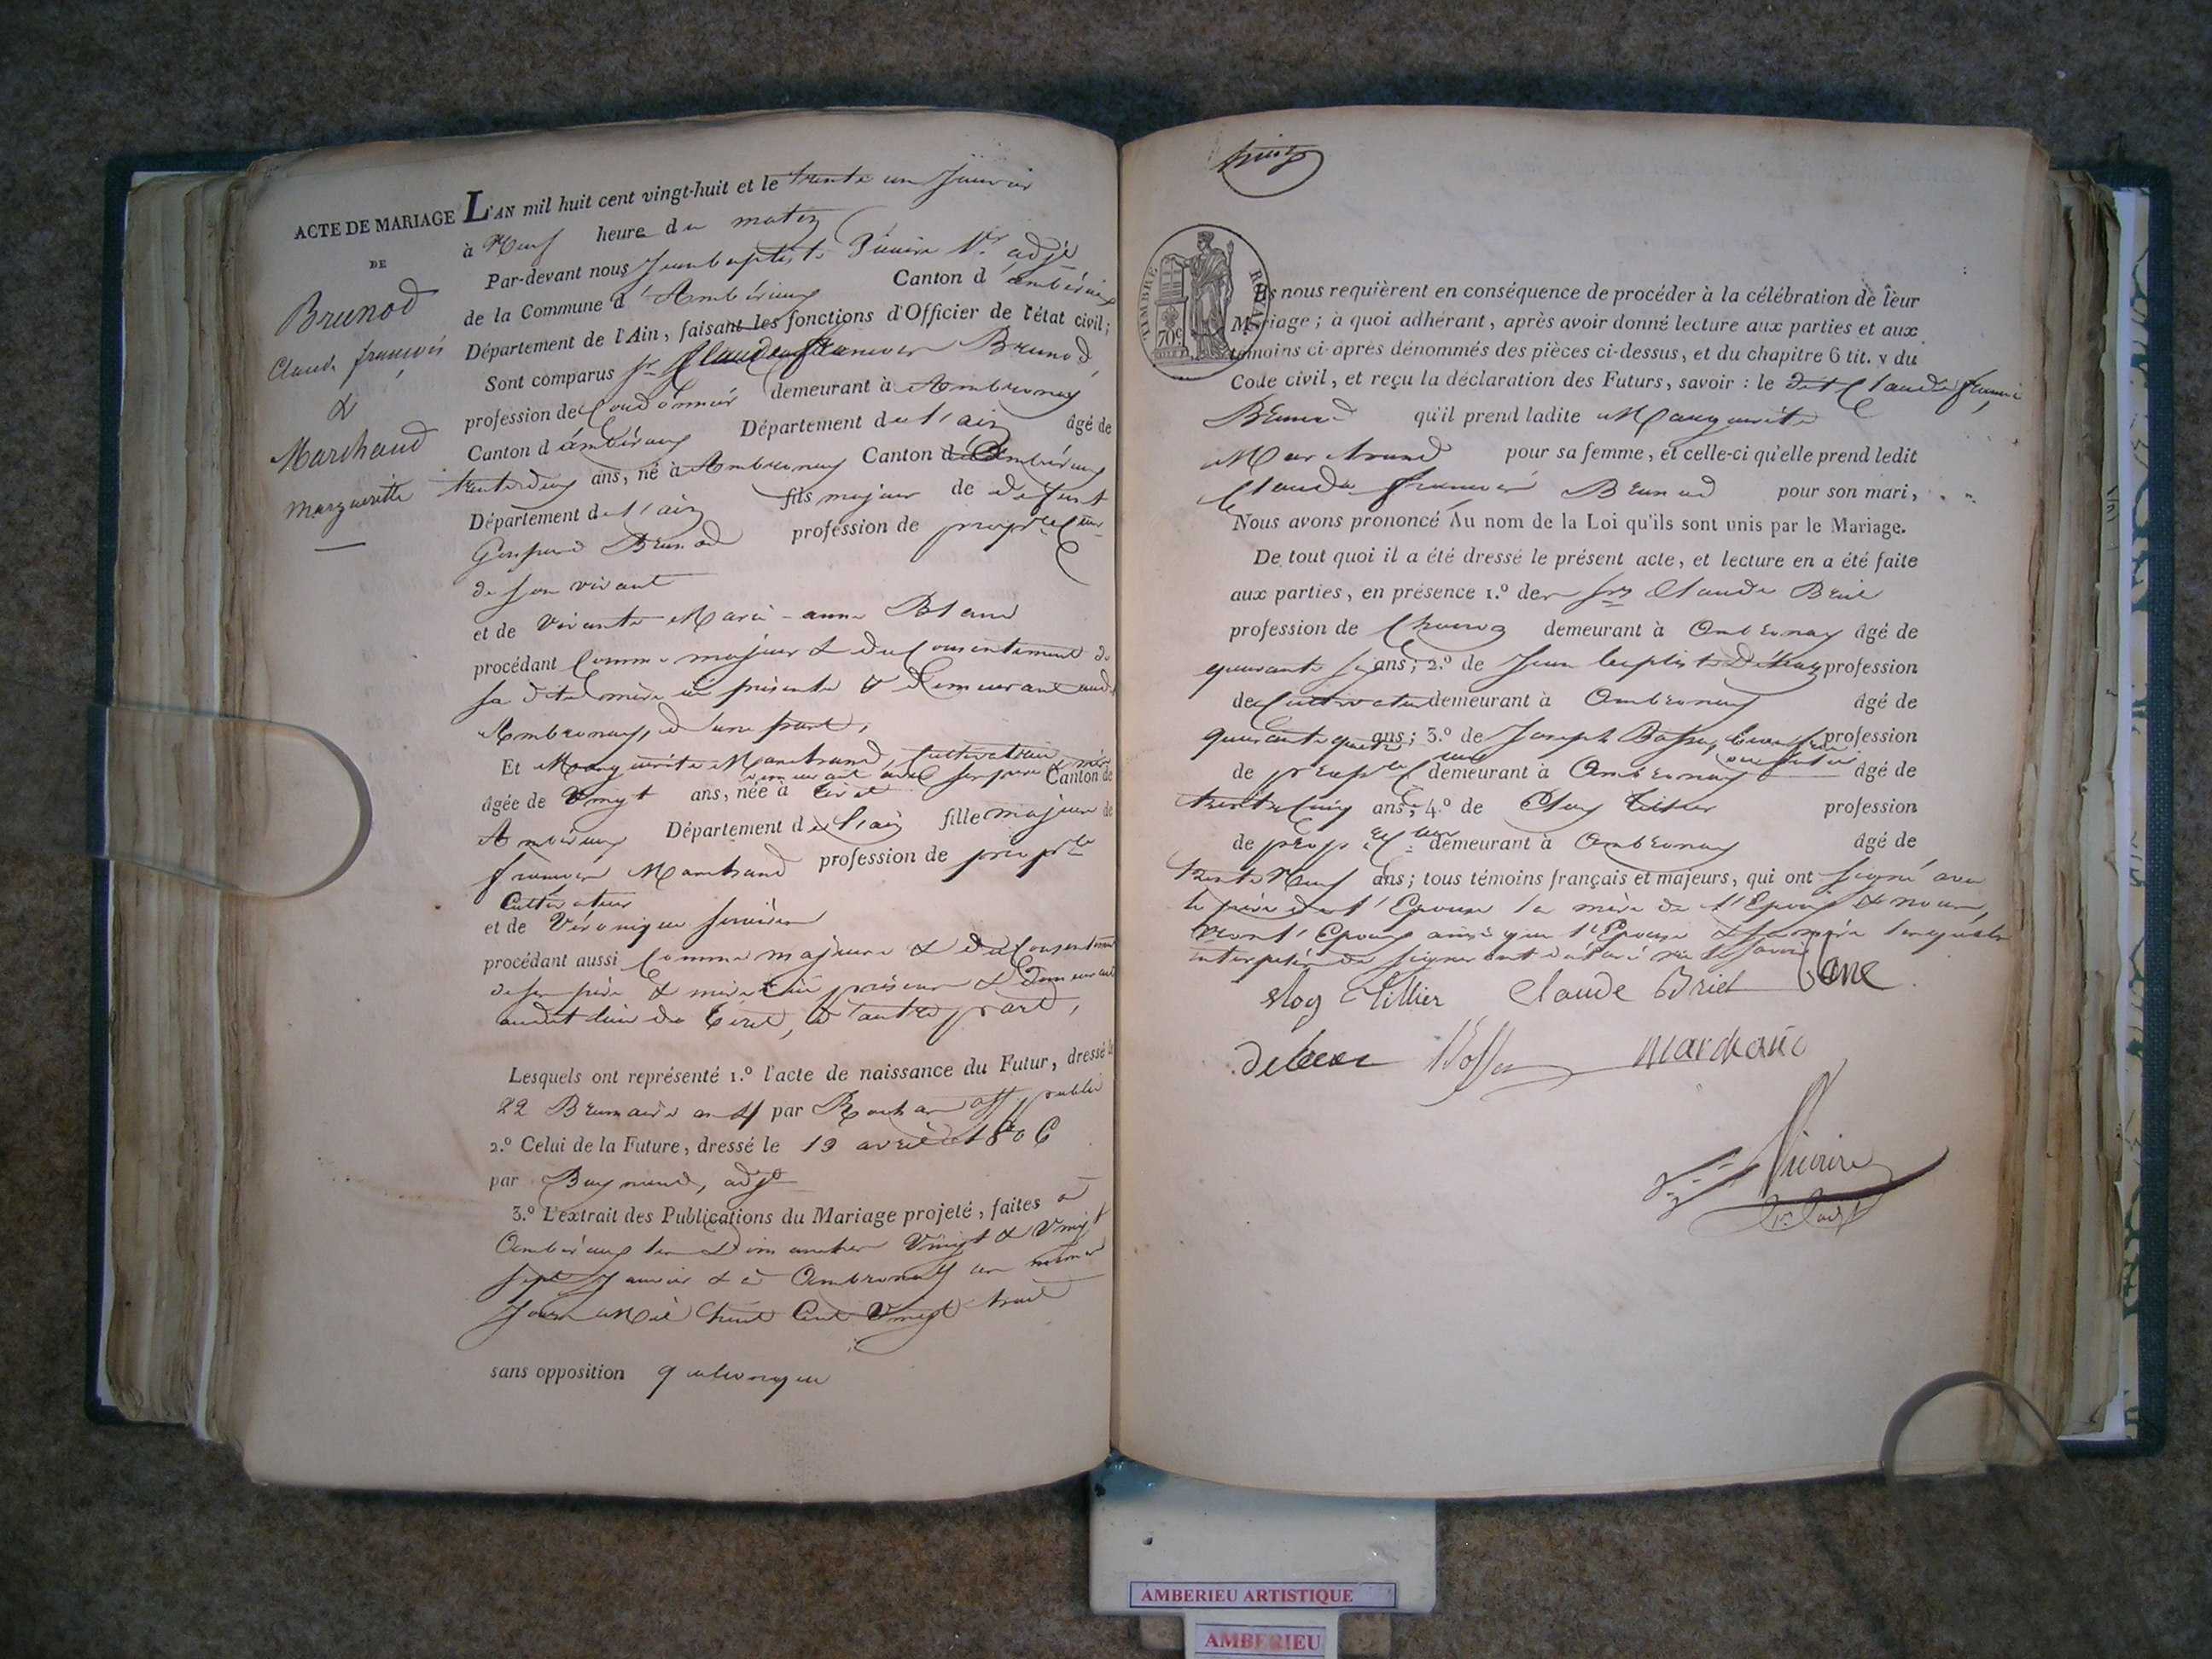 ACTE DE MARIAGE
DE
Brunod
Claude françois
&
Marchand
Marguerite
L'AN mil huit cent vingt-huit et le trente un Janvier
à Neuf heure du matin
Par-devant nous Jean baptiste
de la Commune d'Ambérieux Canton d'ambérieux
Département de l'Ain, faisant les fonctions d'Officier de l'état civil;
Sont comparus Sr Claude françois Brunod
profession de Cordonnier demeurant à Ambronay
Canton d'ambérieux Département de l'ain âgé de
trente deux ans, né à Ambronay Canton d'Ambérieux
Département de l'ain fils majeur de defunt
Brunod profession de
de son vivant
et de vivante Marie-anne
procédant Comme majeur & du Consentement de
sa dite mère ici présente & demeurant audit
Ambronay, d'une part,
Et Marguerite Marchand, Cultivatrice
demeurant avec ses père & mère
âgée de Vingt ans, née à Tiret Canton de
Ambérieux Département de l'ain fille majeure de
françois Marchand profession de
Cultivateur
et de Véronique
procédant aussi Comme majeure & du Consentement
de ses père & mère ici présens & demeurant
audit lieu de Tiret, d'autre part,
Lesquels ont représenté 1.º l'acte de naissance du Futur, dressé le
22 Brumaire an 4 par off. public
2.º Celui de la Future, dressé le 19 avril 1806
par adjt
3.º L'extrait des Publications du Mariage projeté, faites à
Ambérieux les Dimanches Vingt & Vingt
sept Janvier & à Ambronay les mêmes
Jours Mil huit Cent Vingt huit
sans opposition quelconque
TIMBRE ROYAL
70c
Ils nous requièrent en conséquence de procéder à la célébration de leur
Mariage; à quoi adhérant, après avoir donné lecture aux parties et aux
témoins ci-après dénommés des pièces ci-dessus, et du chapitre 6 tit. v du
Code civil, et reçu la déclaration des Futurs, savoir: le dit Claude françois
Brunod qu'il prend ladite Marguerite
Marchand pour sa femme, et celle-ci qu'elle prend ledit
Claude françois Brunod pour son mari,
Nous avons prononcé Au nom de la Loi qu'ils sont unis par le Mariage.
De tout quoi il a été dressé le présent acte, et lecture en a été faite
aux parties, en présence 1.º des Srs Claude Briel
profession de demeurant à Ambronay âgé de
quarante six ans; 2.º de Jean baptiste profession
de Cultivateur demeurant à Ambronay âgé de
quarante quatre ans; 3.º de Joseph profession
de demeurant à Ambronay âgé de
trente Cinq ans; 4.º de Eloy Tillier profession
de demeurant à Ambronay âgé de
trente Neuf ans; tous témoins français et majeurs, qui ont signé avec
le père de l'Epouse la mère de l'Epoux & nous,
non l'Epoux ainsi que l'Epouse & sa mère lesquels
interpelés de signer ont déclaré ne le savoir
Eloy Tillier Claude Briel
Marchand